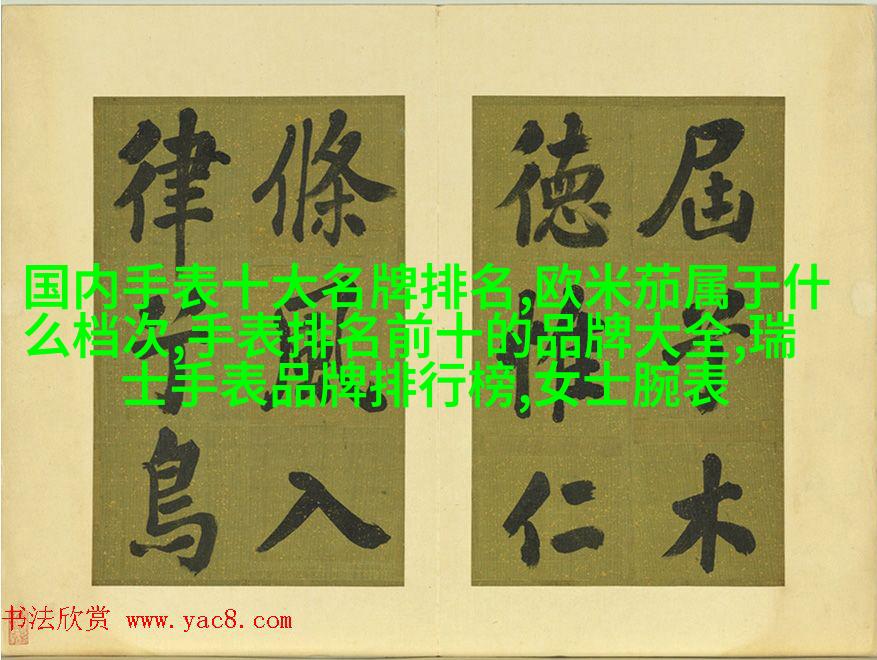 屆木
德仁
條風入
律鳥
国内手表十大名牌排名,欧米茄属于什
么档次,手表排名前十的品牌大全,瑞
士手表品牌排行榜,女士腕表
书法欣赏 www.yac8.com